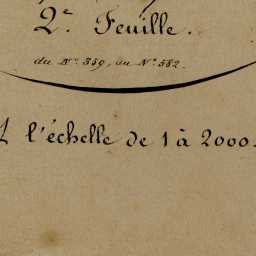 2e Feuille.
du No 359, au No 582.
A l'échelle de 1 à 2000.